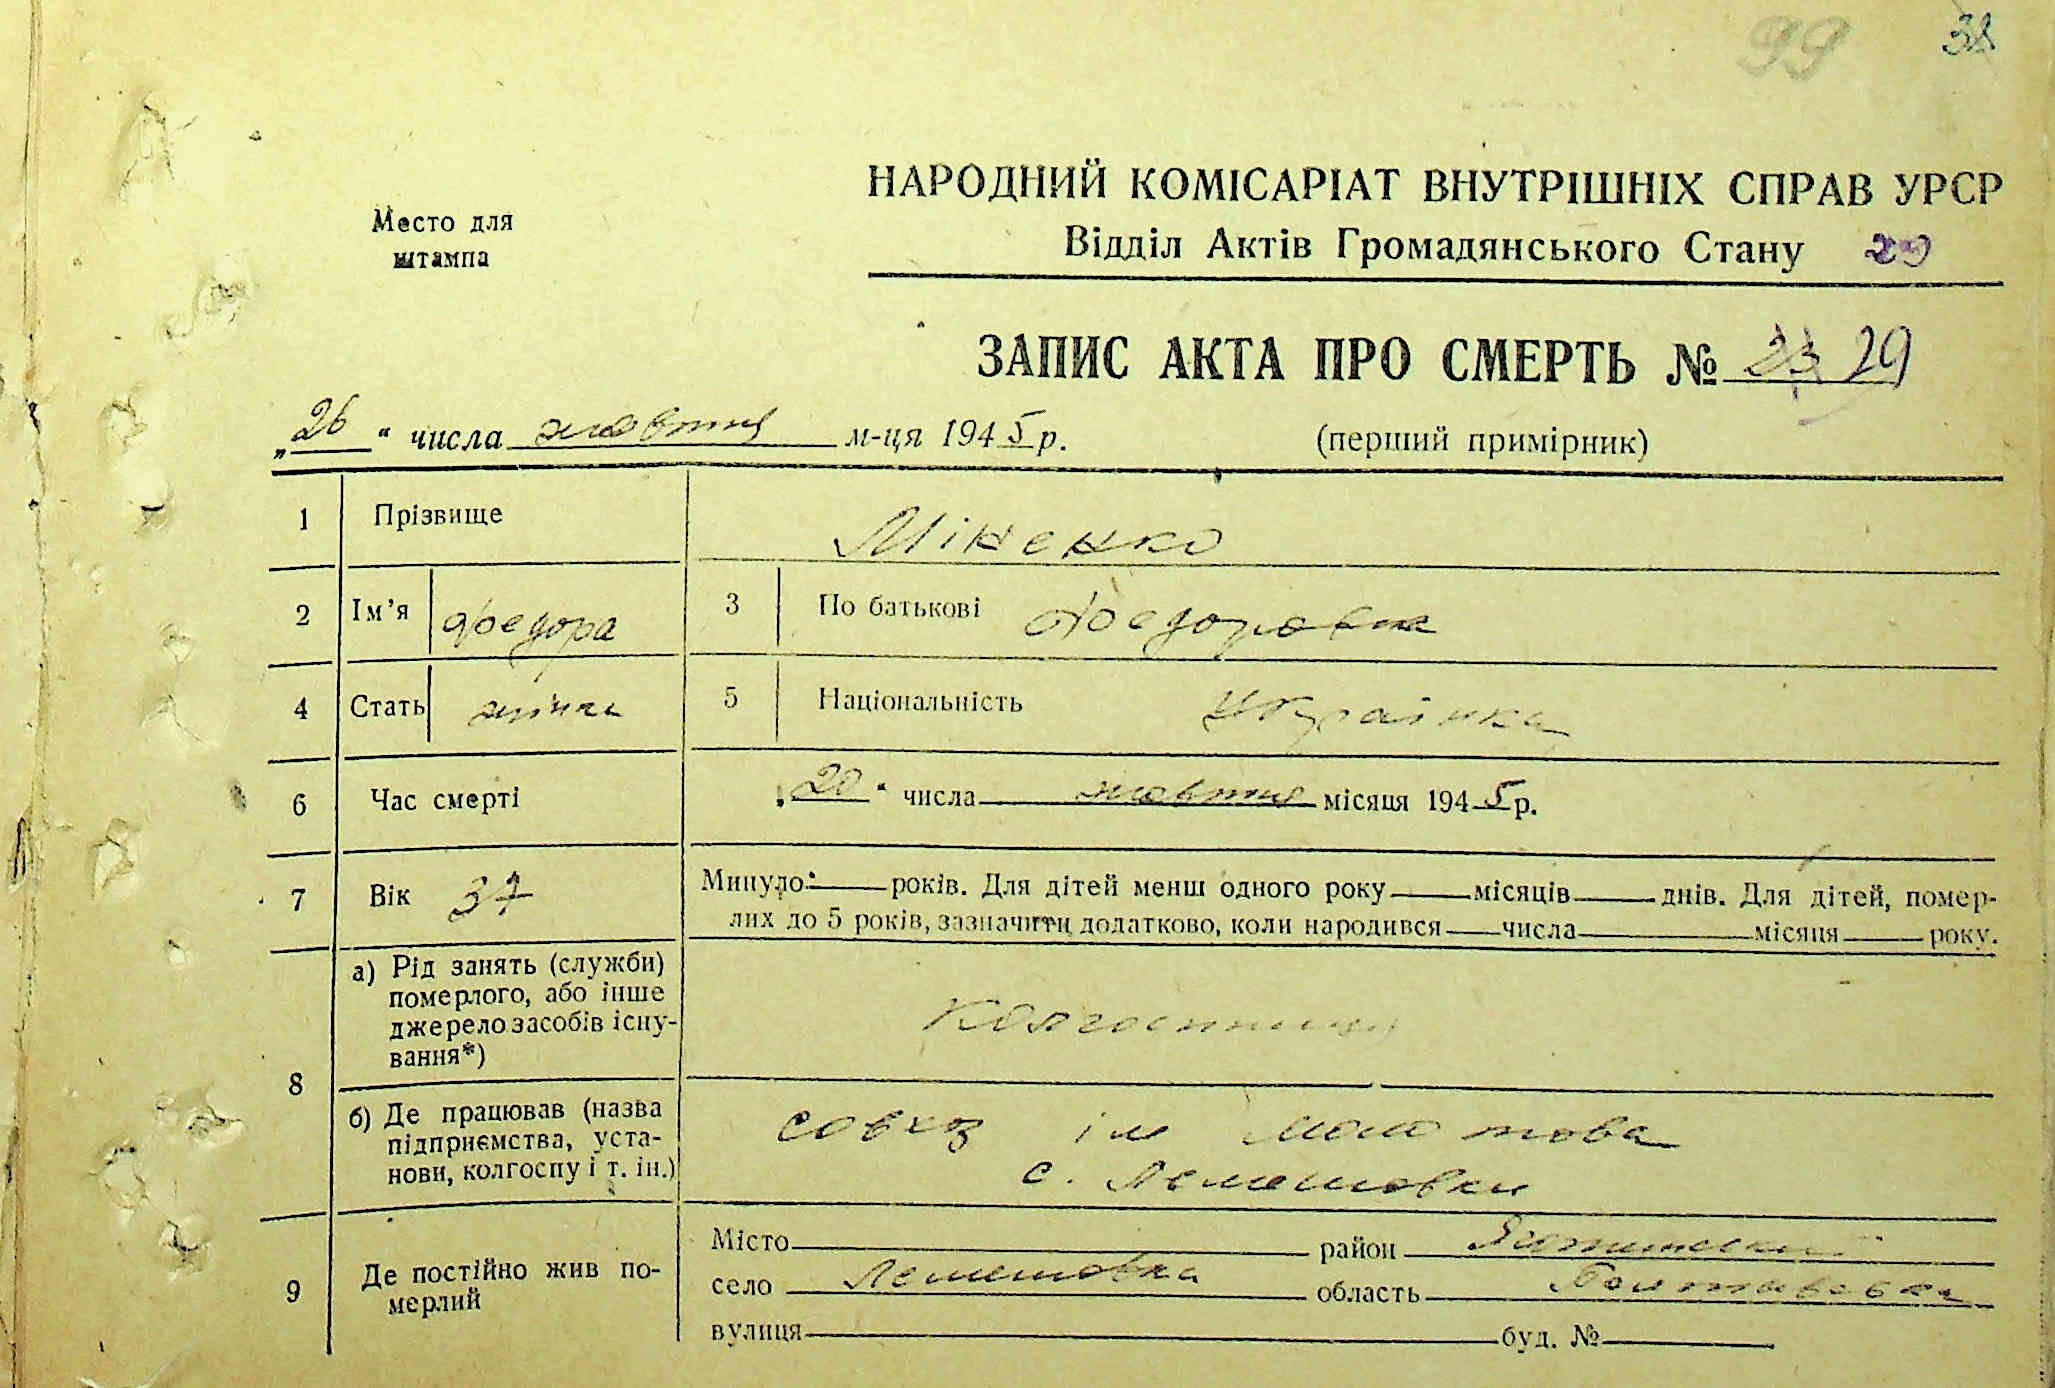 99 38
НАРОДНИЙ КОМІСАРІАТ ВНУТРІШНІХ СПРАВ УРСР
Место для
штампа
Відділ Актів Громадянського Стану 29
ЗАПИС АКТА ПРО СМЕРТЬ № 23 29
„26“ числа жовтня м-ця 1945 р. (перший примірник)
1 Прізвище Міненко
2 Ім’я Федора 3 По батькові Федоровна
4 Стать жінка 5 Національність Українка
6 Час смерті „20“ числа жовтня місяця 1945 р.
7 Вік 37 Минуло— років. Для дітей менш одного року — місяців — днів. Для дітей, помер-
лих до 5 років, зазначити додатково, коли народився — числа — місяця — року.
8 а) Рід занять (служби)
померлого, або інше
джерело засобів існу-
вання*)
Колгоспниця
б) Де працював (назва
підприємства, уста-
нови, колгоспу і т. ін.)
ім Молотова
с. Лемешовки
9 Де постійно жив по-
мерлий
Місто район Яготинский
село Лемешовка область Полтавска
вулиця буд. №